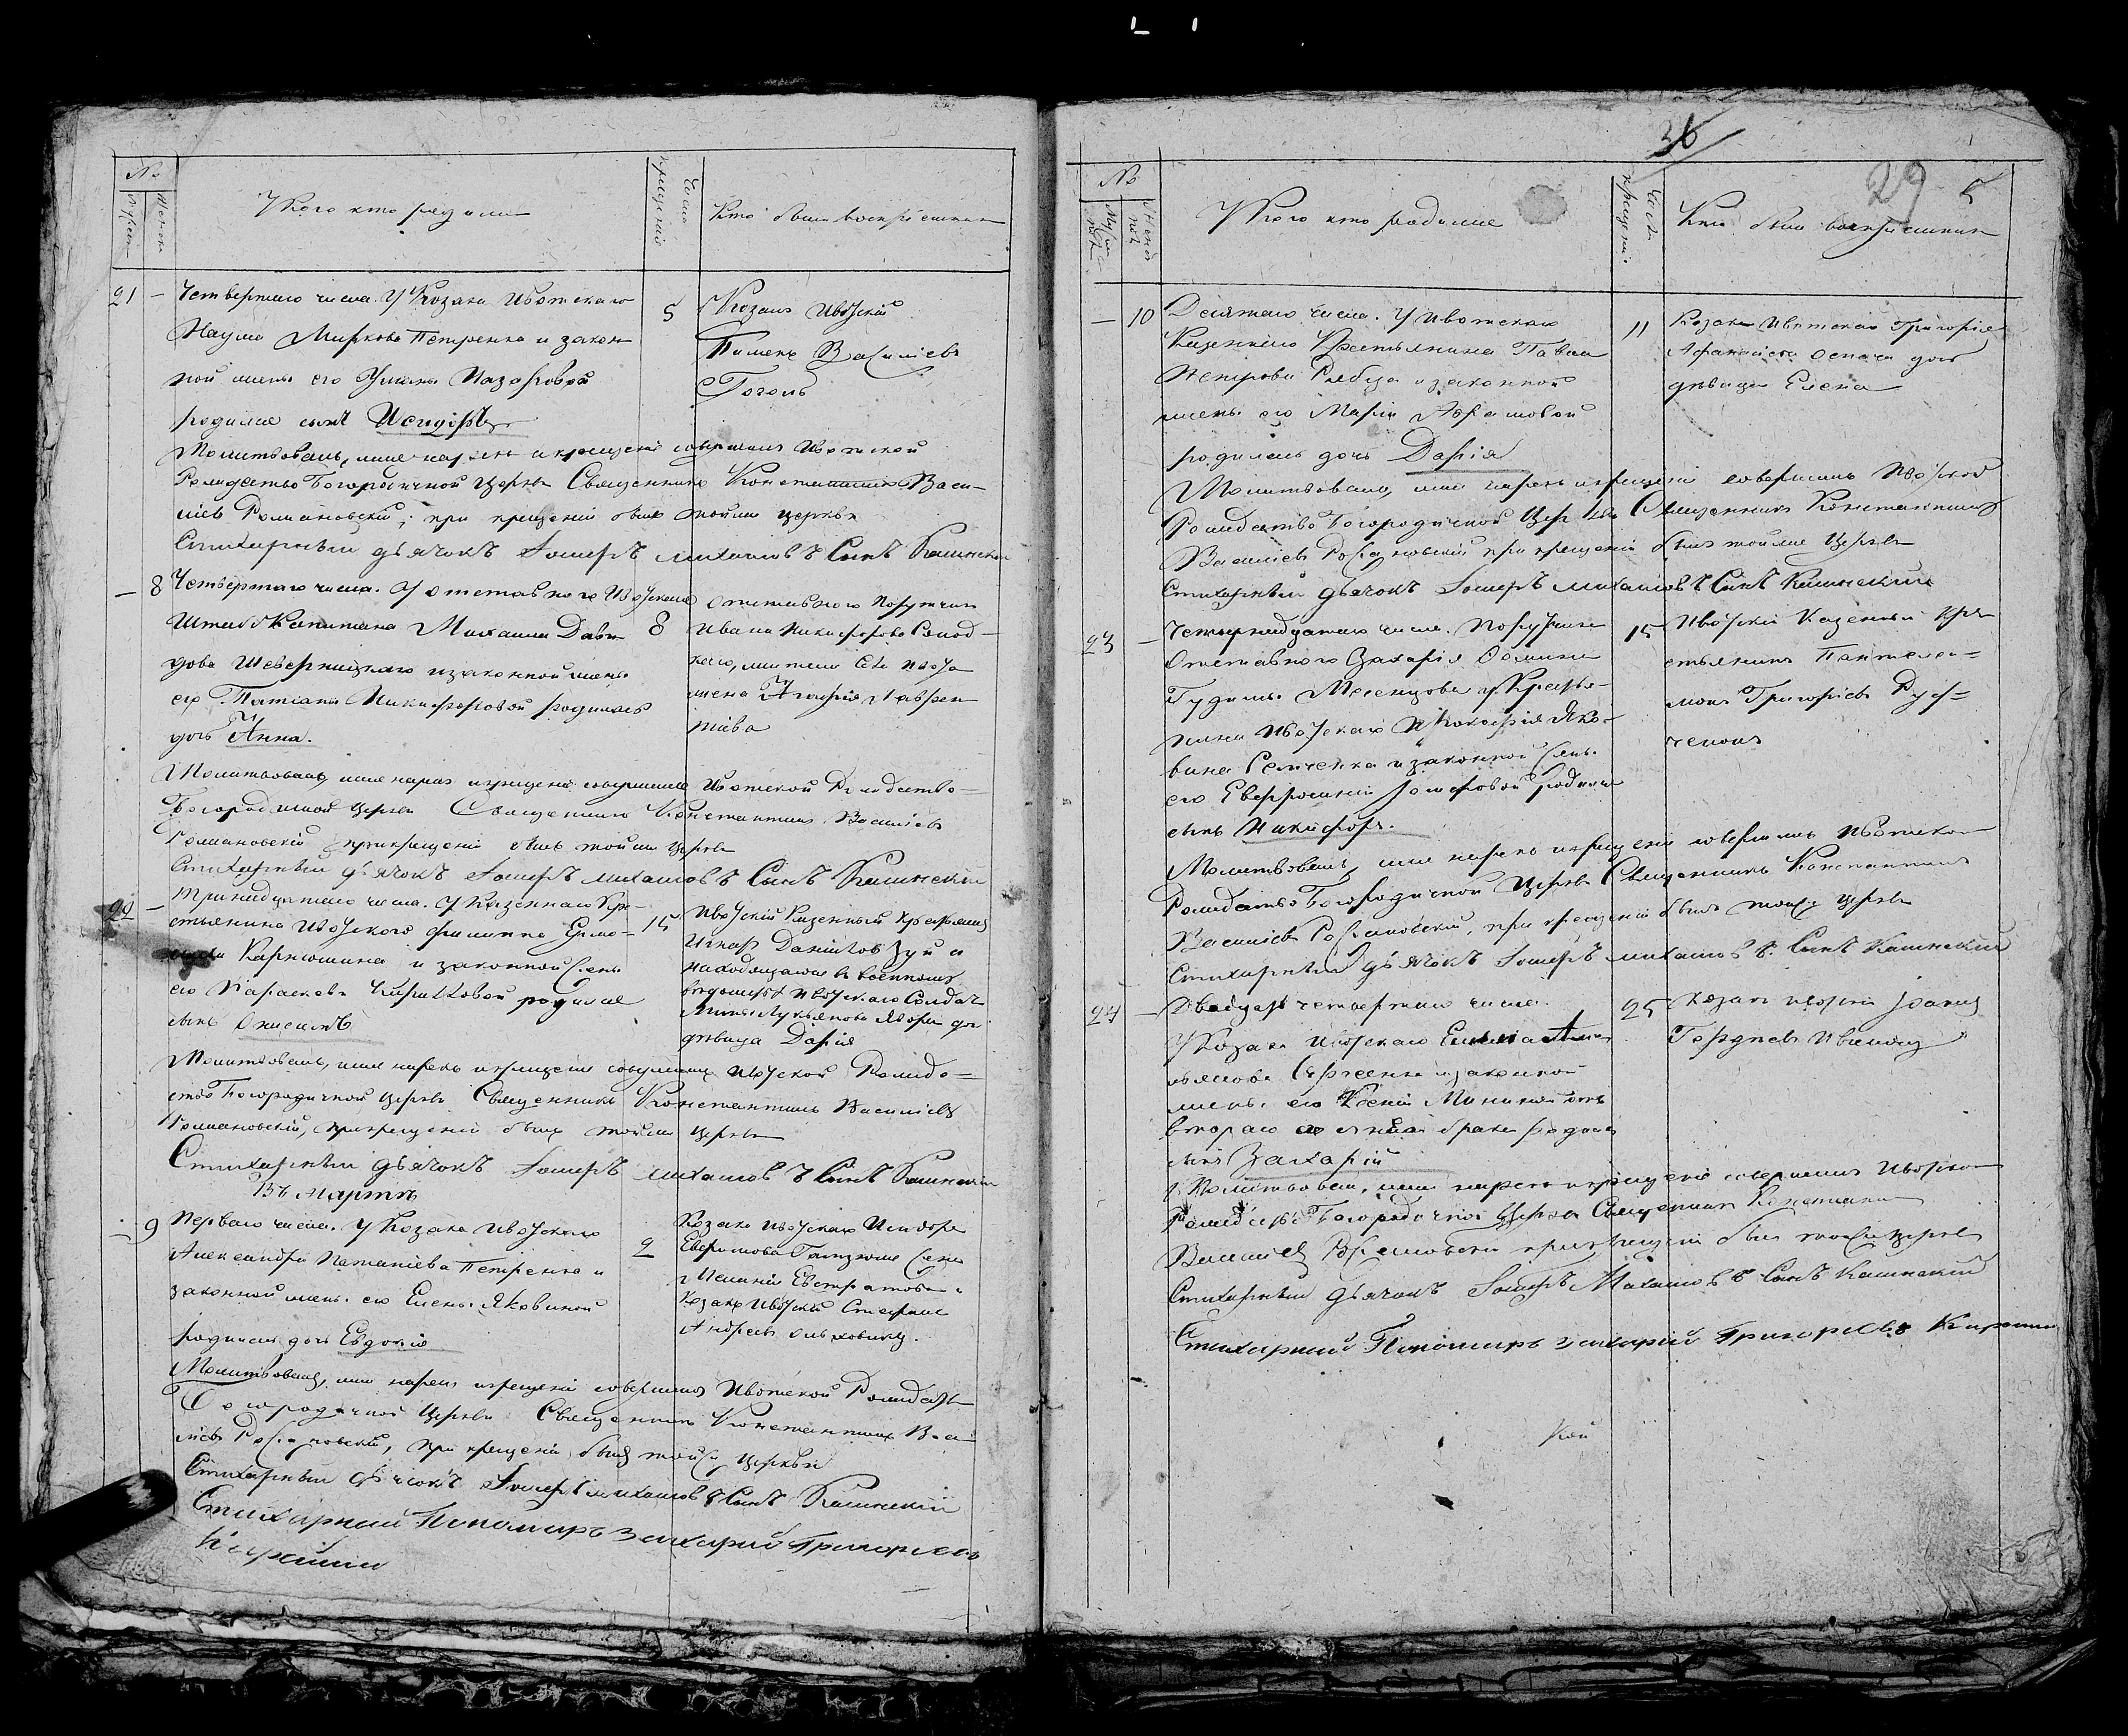 №
мужеск
женск
У кого кто родился
Число крещенія
Кто былъ воспріемникомъ
21 — Четвертаго числа. У Козака Ивотскаго
Наума Маркова Петренка и закон
ной жены его Ульяны Назаровой
родился сынъ Исидоръ
5
Козакъ Ивотскій
Пименъ Василіевъ
Гоголь
Молитвовалъ, имя нареклъ и крещеніе совершилъ Ивотской
Рождество Богородичной Церкви Священникъ Константинъ Васи-
ліевъ Романовскій; при крещеніи былъ тойже церкви
Стихарный дьячокъ Іосифъ Михайловъ Сынъ Калинскій
— 8 Четвертаго числа. У отставного Ивотскаго
Штабс Капитана Михаила Давы
дова Шеверницкаго и законной жены
его Татіаны Никифоровой родилась
дочь Анна.
8
отставного Поручика
Ивана Никифорова
жена Агафія Лаврен
тіева
Молитвовалъ, имя нарекъ и крещеніе совершилъ Ивотской Рождество-
Богородичной церкви Священникъ Константинъ Василіевъ
Романовскій при крещеніи былъ тойже церкви
Стихарный дьячокъ Іосифъ Михайловъ Сынъ Калинскій
22 — Тринадцатаго числа. У Казеннаго Кре-
стьянина Ивотского Филиппа
и законной жены
его Параскевы родился
сынъ Онисимъ
15
Ивотскій Казенный Крестьянинъ
Игнатъ Даниловъ Зуй и
находящагося в военномъ
вѣдомстве Ивотскаго Солдата
дочь
дѣвица Дарія
Молитвовалъ, имя нарекъ и крещеніе совершилъ Ивотской Рождес-
ство Богородичной церкви Священникъ Константинъ Василіевъ
Романовскій, при крещеніи былъ тойже церкви
Стихарный дьячокъ Іосифъ Михайловъ Сынъ Калинскій
Въ мартѣ
— 9 Перваго числа. У Козака Ивотскаго
Александра Петренка и
законной жены его Елены Яковиной
родилась дочь Евдокія
2
Козака Ивотскаго Исидора
жена
Меланія Евстратова и
Козакъ Ивотскій Стефанъ
Андреевъ Ольховикъ.
Молитвовалъ, имя нарекъ и крещеніе совершилъ Ивотской Рождество
Богородичной Церкви Священникъ Константинъ Васи-
ліевъ Романовскій, при крещеніи былъ тойже церкви
Стихарный дьячокъ Іосифъ Михайловъ Сынъ Калинскій
Стихарный Пономарь Захарій Григорьевъ
36
29 5
№
Мужескъ
Женскъ
У кого кто родился
Число крещенія
Кто былъ воспріемникомъ
— 10 Десятаго числа. У Ивотскаго
Казеннаго Крестьянина Павла
Петрова Рябца и законной
жены его Маріи Абрамовой
родилась дочь Дарія
11
Козака Ивотскаго Григорія
Афанасіева дочь
дѣвица Елена
Молитвовалъ, имя нарекъ и крещеніе совершилъ Ивотской
Рождество Богородичной Церкви Священникъ Константинъ
Василіевъ Романовскій при крещеніи былъ тойже Церкви
Стихарный дьячокъ Іосифъ Михайловъ Сынъ Калинскій
23 — Четырнадцатаго числа. Поручика
Отставного Захарія
у Крестья-
нина Ивотскаго Прокофія Яко-
вина и законной жены
его Евфросиніи Іосифовой родился
сынъ Никифоръ.
15
Ивотскій Казенный Кре
стьянинъ Пантелеи-
монъ Григоріевъ Руд-
ченокъ
Молитвовалъ, имя нарекъ и крещеніе совершилъ Ивотской
Рождество Богородичной Церкви Священникъ Константинъ
Василіевъ Романовскій, при крещеніи былъ тойже церкви
Стихарный дьячокъ Іосифъ Михайловъ Сынъ Калинскій
24 — Двадцать четвертаго числа.
У Козака Ивотскаго
Сергеенка и законной
жены его Ксеніи Мининой отъ
втораго брака родился
сынъ Захарій
25
Козакъ Ивотскій Іоаннъ
Гордіевъ
Молитвовалъ, имя нарекъ и крещеніе совершилъ Ивотской
Рождество Богородичной Церкви Священникъ Константинъ
Василіевъ Романовскій при крещеніи былъ тойже церкви
Стихарный дьячокъ Іосифъ Михайловъ Сынъ Калинскій
Стихарный Пономарь Захарій Григорьевъ